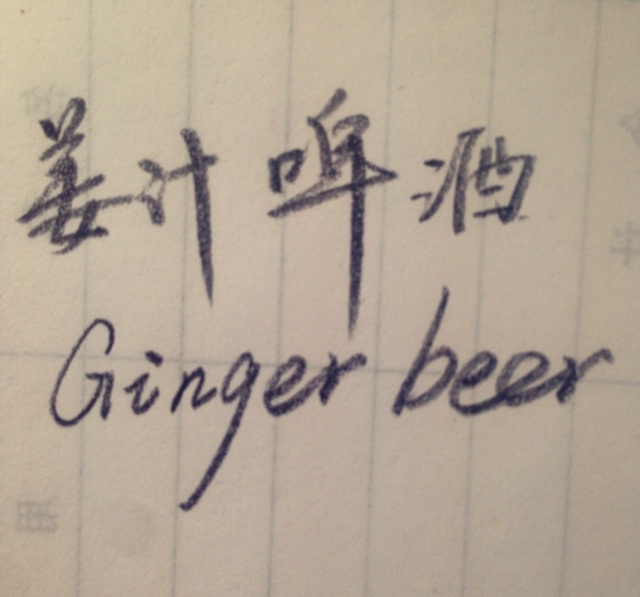 姜汁啤酒
Ginger beer